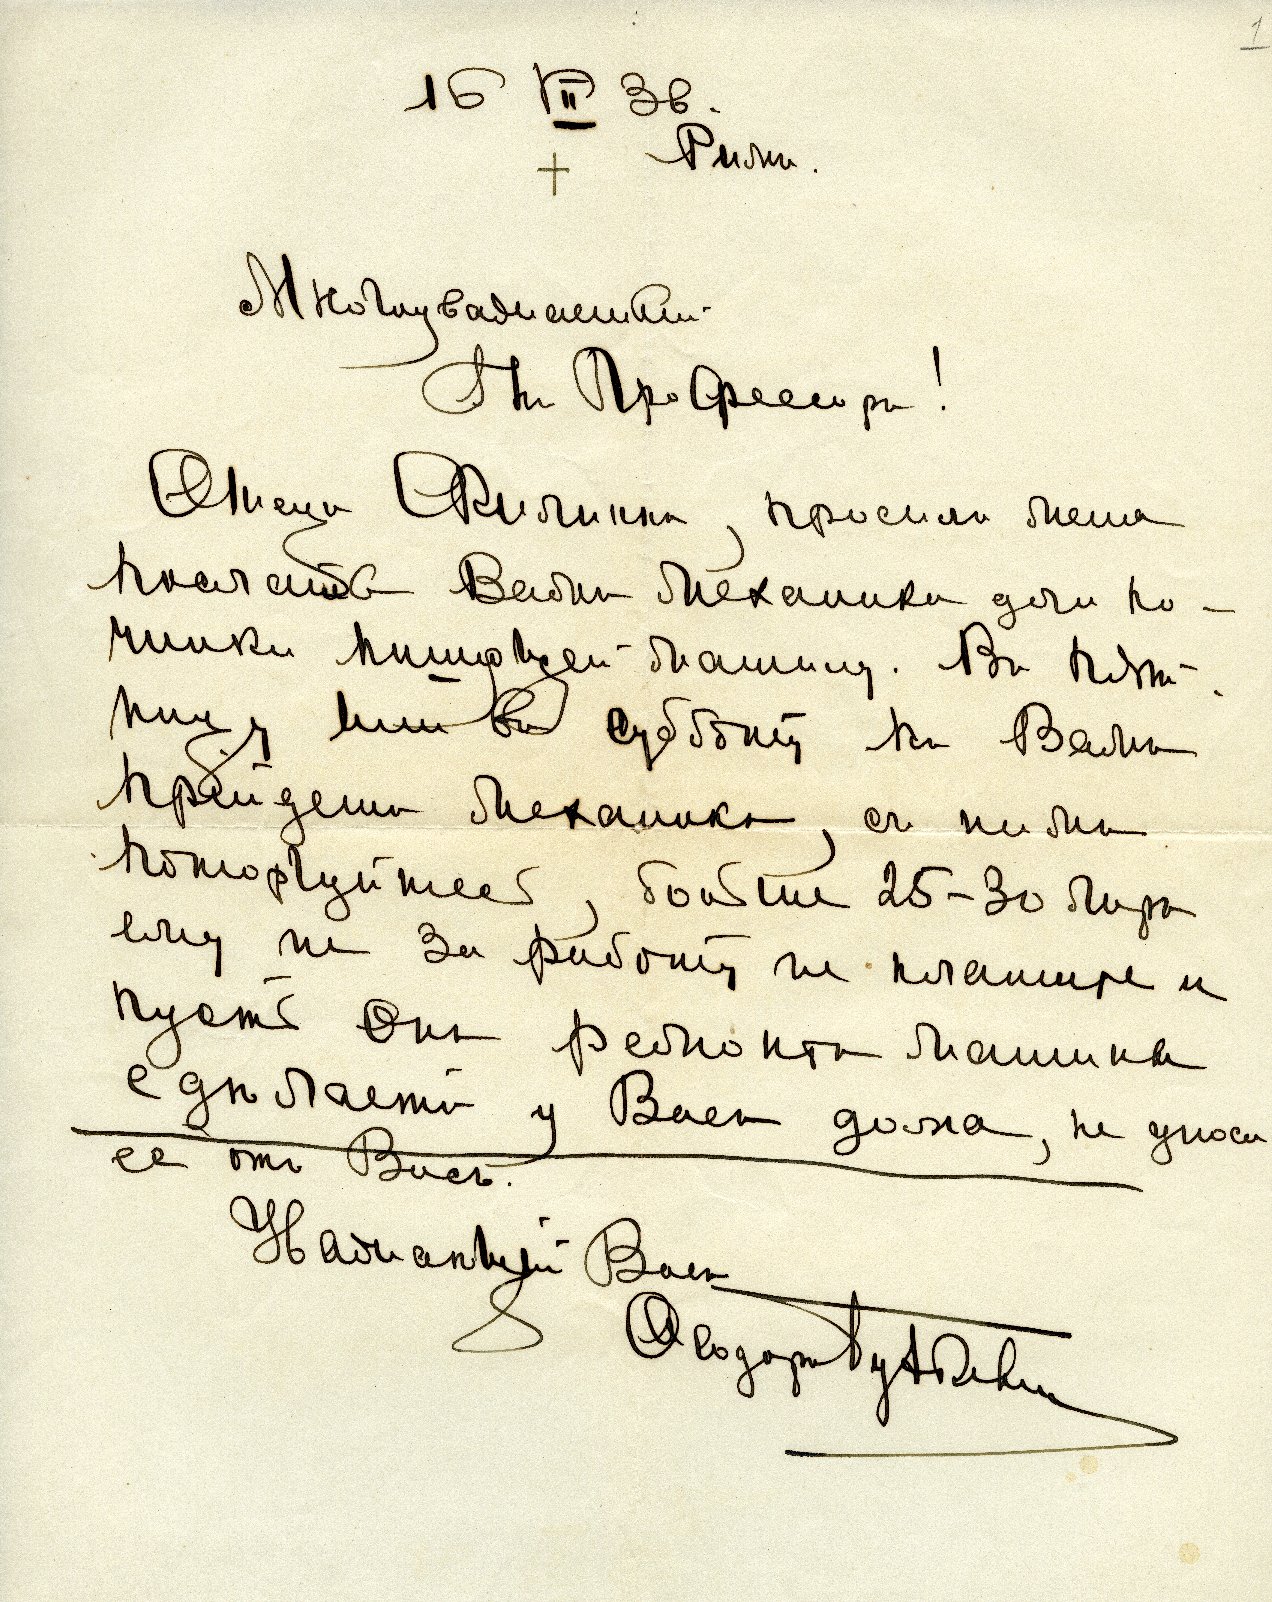 1
16 VII 36.
Римъ.
Многоуважаемый
Гнъ Профессоръ!
Отецъ Филиппъ, просилъ меня
послать Вамъ механика для по-
чинки пишущей машины. Въ пят-
ницу или въ субботу къ Вамъ
прійдетъ механикъ, съ нимъ
поторгуйтесь, больше 25-30 лиръ
ему не за работу не платите и
пусть онъ ремонтъ машинки
сдѣлаетъ у Васъ дома, не унося
ее отъ Васъ.
Уважающій Васъ
Ѳеодоръ